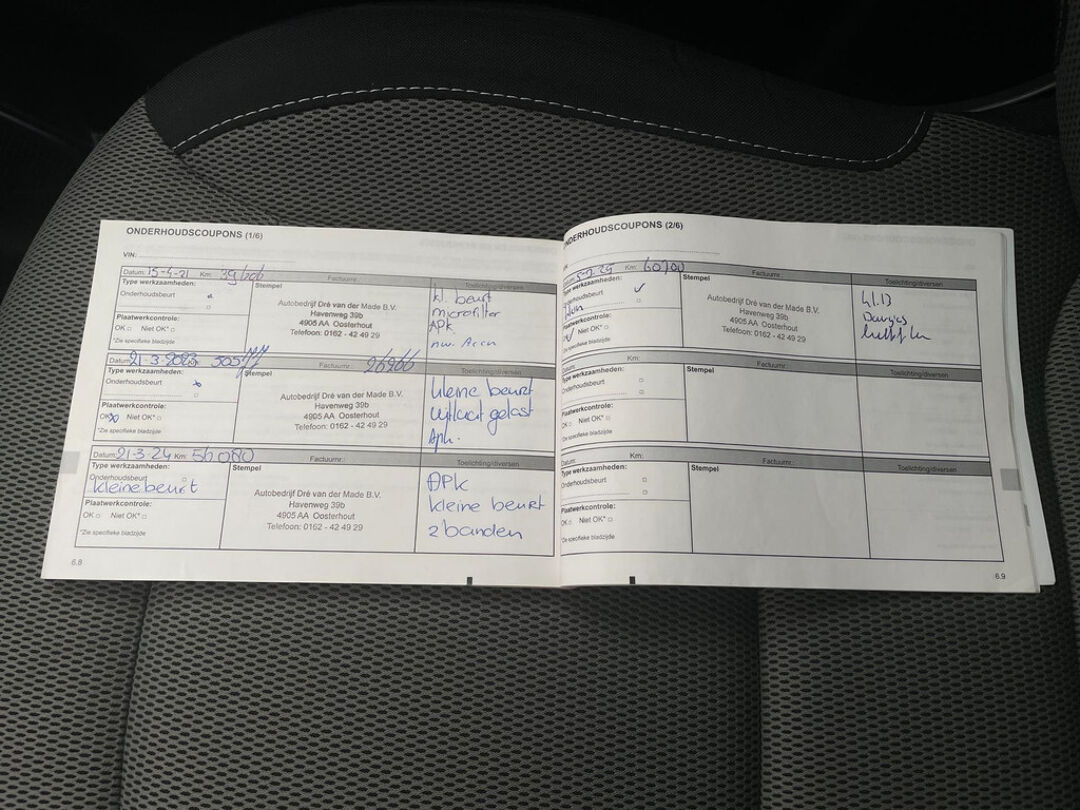 ONDERHOUDSCOUPONS (1/6)
VIN:
Datum: 15-4-21 Km:
Factuurnr.:
Type werkzaamheden:
Stempel
Toelichting/diversen
Onderhoudsbeurt
Plaatwerkcontrole:
OK Niet OK*
*Zie specifieke bladzijde
Autobedrijf Dré van der Made B.V.
Havenweg 39b
4905 AA Oosterhout
Telefoon: 0162 - 42 49 29
kl. beurt
microfilter
APK
nw. Accu
Datum: 21-3-2023
Factuurnr.: 26266
Type werkzaamheden:
Stempel
Toelichting/diversen
Onderhoudsbeurt
Plaatwerkcontrole:
OK Niet OK*
*Zie specifieke bladzijde
Autobedrijf Dré van der Made B.V.
Havenweg 39b
4905 AA Oosterhout
Telefoon: 0162 - 42 49 29
kleine beurt
uitlaat gelast
Apk.
Datum: 21-3-24 Km: 56080
Factuurnr.:
Type werkzaamheden:
Stempel
Toelichting/diversen
Onderhoudsbeurt
kleine beurt
Plaatwerkcontrole:
OK Niet OK*
*Zie specifieke bladzijde
Autobedrijf Dré van der Made B.V.
Havenweg 39b
4905 AA Oosterhout
Telefoon: 0162 - 42 49 29
APK
kleine beurt
2 banden
6.8
ONDERHOUDSCOUPONS (2/6)
Km: 60700
Factuurnr.:
Type werkzaamheden:
Stempel
Toelichting/diversen
Onderhoudsbeurt
Plaatwerkcontrole:
OK Niet OK*
*Zie specifieke bladzijde
Autobedrijf Dré van der Made B.V.
Havenweg 39b
4905 AA Oosterhout
Telefoon: 0162 - 42 49 29
Km:
Factuurnr.:
Type werkzaamheden:
Stempel
Toelichting/diversen
Onderhoudsbeurt
Plaatwerkcontrole:
OK Niet OK*
*Zie specifieke bladzijde
Datum: Km:
Factuurnr.:
Type werkzaamheden:
Stempel
Toelichting/diversen
Onderhoudsbeurt
Plaatwerkcontrole:
OK Niet OK*
*Zie specifieke bladzijde
6.9